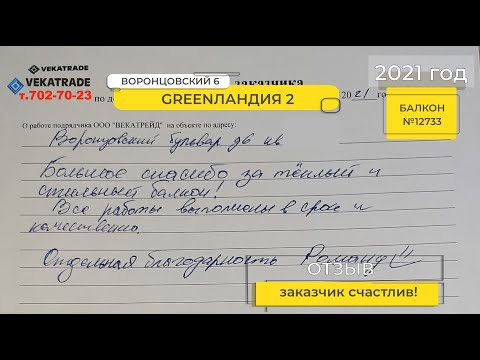 VEKATRADE
VEKATRADE
т.702-70-23
ВОРОНЦОВСКИЙ 6
заказчика
2021 год
по до
GREENЛАНДИЯ 2
2021 го
БАЛКОН
№12733
О работе подрядчика ООО "ВЕКАТРЕЙД" на объекте по адресу:
Воронцовский бульвар д6 кв
Большое спасибо за тёплый и
стильный балкон!
Все работы выполнены в срок и
качественно.
Отдельная благодарность Роману!!
ОТЗЫВ
заказчик счастлив!